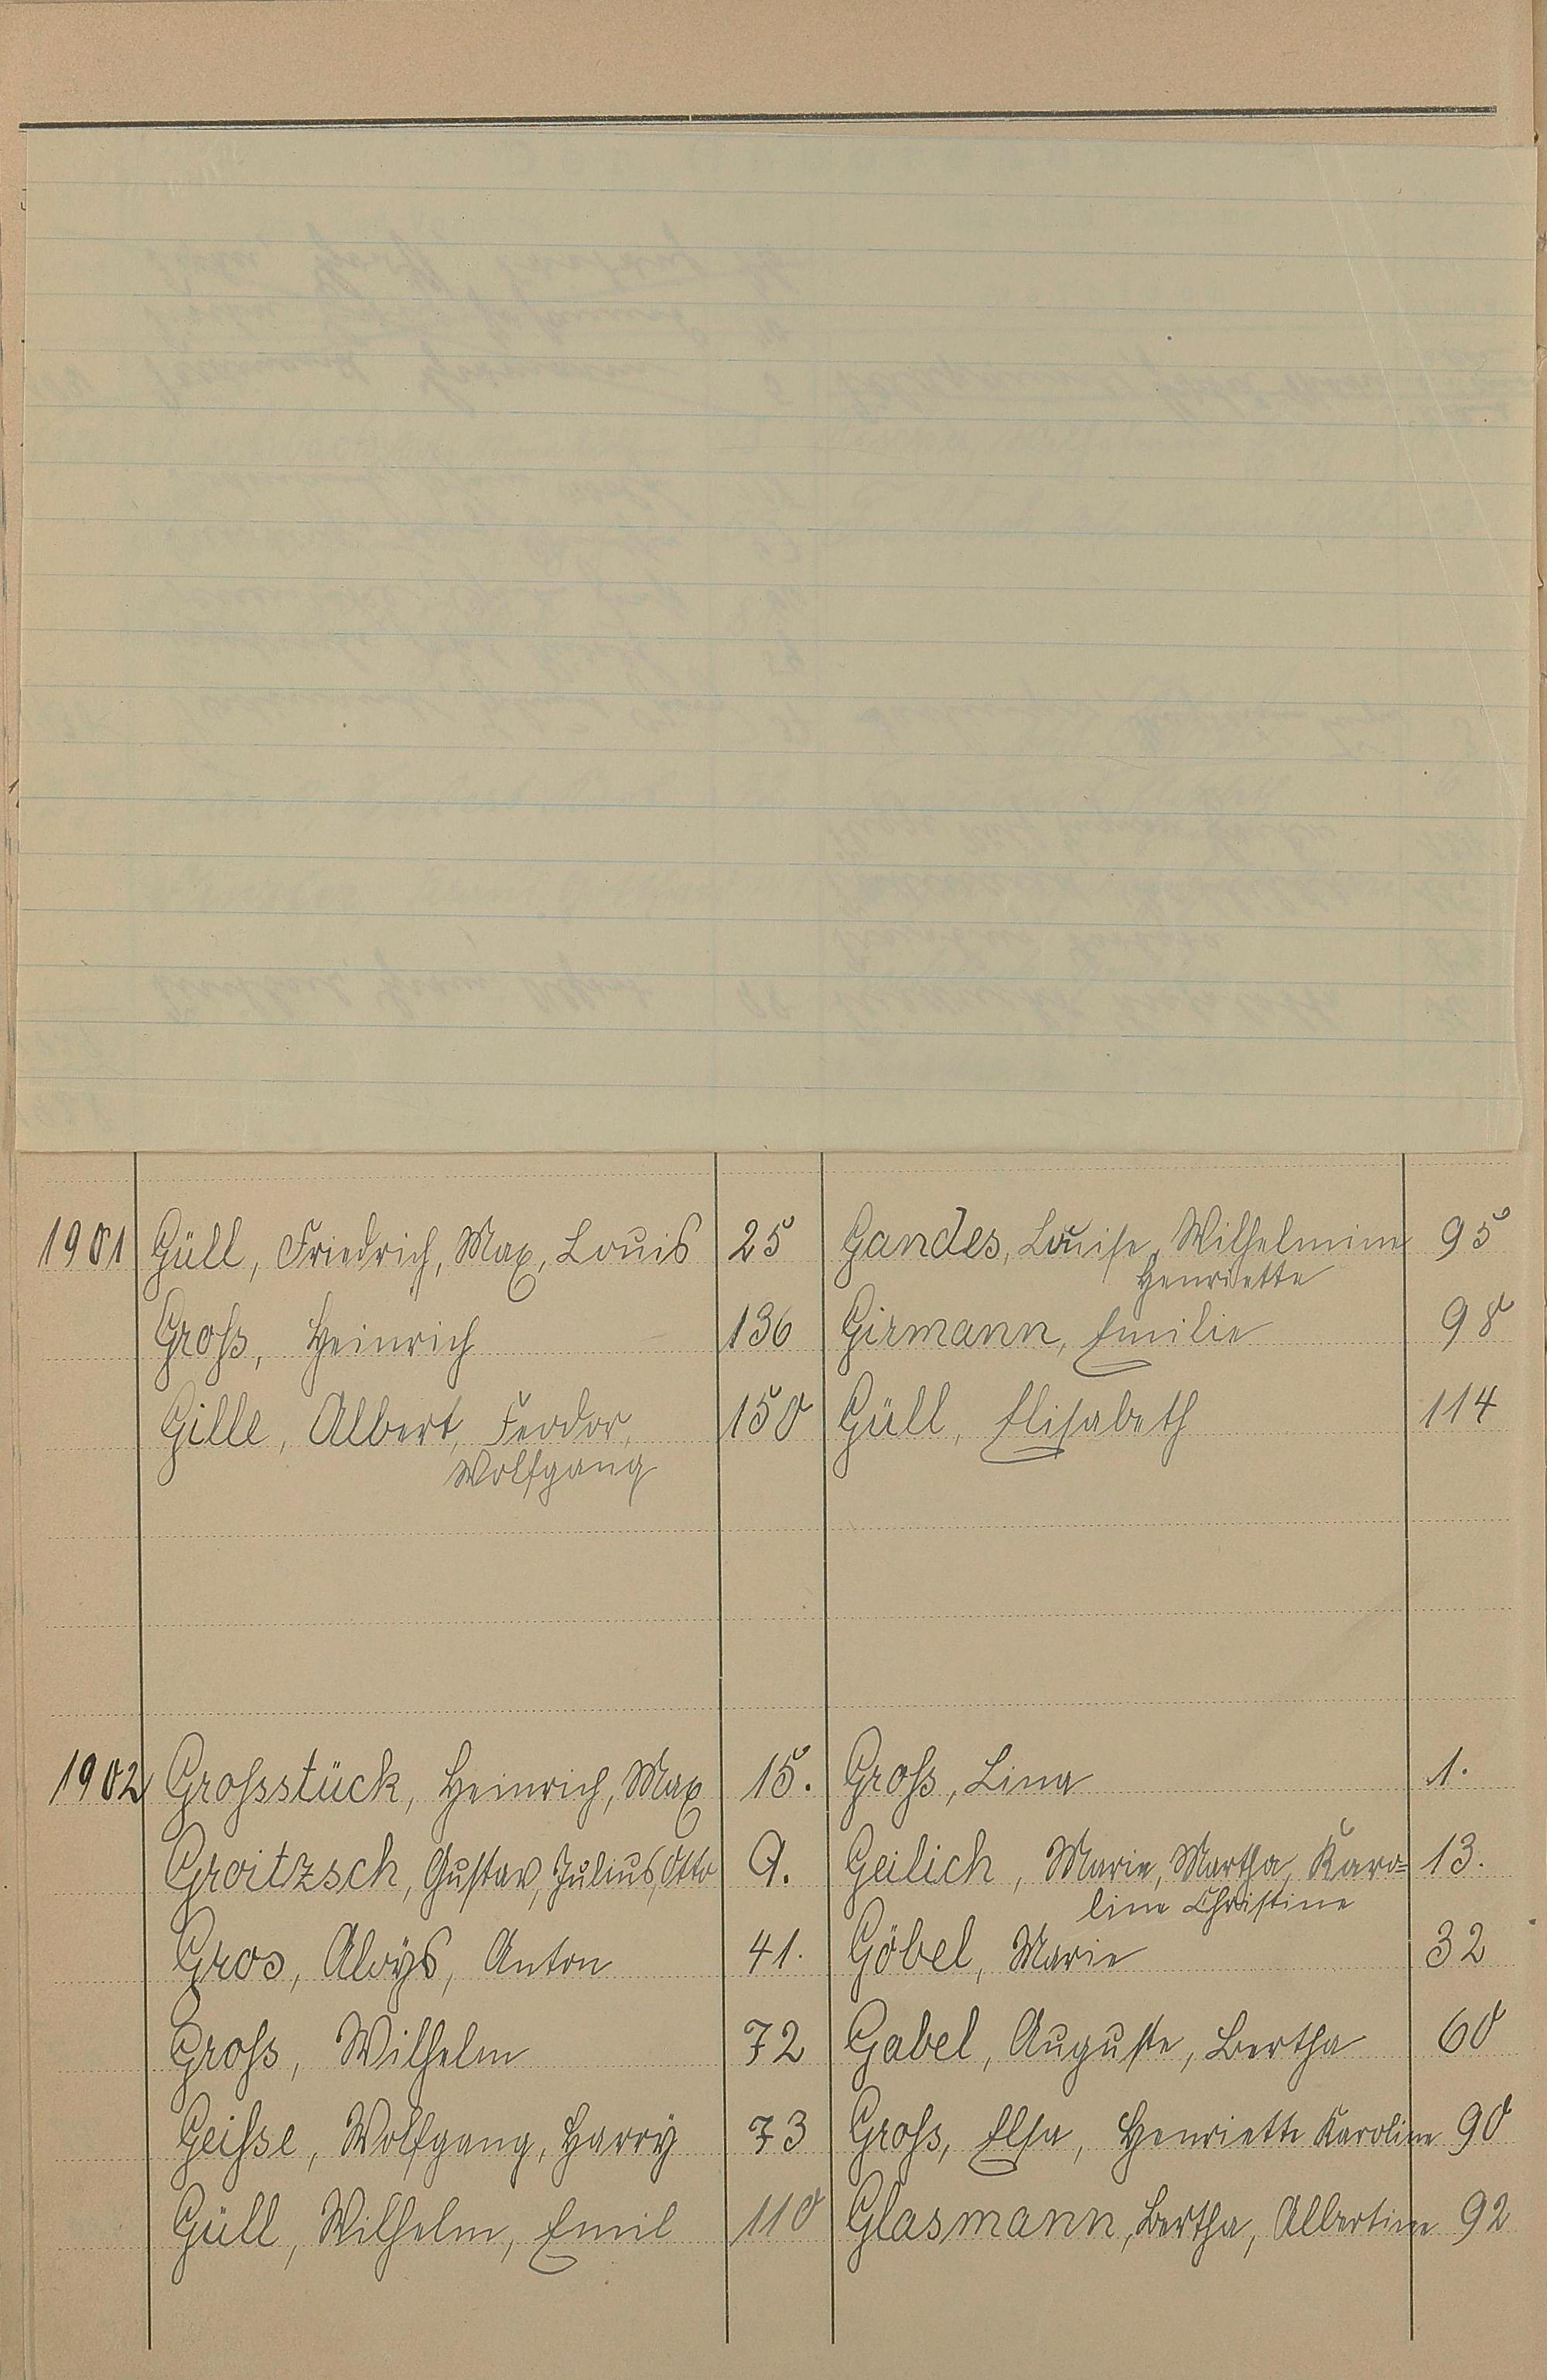 1901 Güll, Friedrich, Max, Louis 25 Gandes, Louise, Wilhelmine 95
Henriette
Groß, Heinrich 136 Girmann, Emilie 98
Gille, Albert, Feodor, 150 Güll, Elisabeth 114
Wolfgang
1902 Großstück, Heinrich, Max 15. Groß, Lina 1.
Groitzsch, Gustav, Julius, Otto 9. Geilich, Marie, Martha, Karo= 13.
line Christine
Gros, Aloÿs, Anton 41. Göbel, Marie 32
Groß, Wilhelm 72 Gabel, Auguste, Bertha 60
Geiße, Wolfgang, Harrÿ 73 Groß, Elsa, Henriette Karoline 90
Güll, Wilhelm, Emil 110 Glasmann, Bertha, Albertine 92